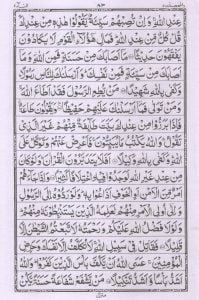 عِنْدِ اللّٰهِ ۚ وَاِنْ تُصِبْهُمْ سَيِّئَةٌ يَّقُوْلُوْا هٰذِهٖ مِنْ عِنْدِكَ ؕ
قُلْ كُلٌّ مِّنْ عِنْدِ اللّٰهِ ؕ فَمَالِ هٰٓؤُلَآءِ الْقَوْمِ لَا يَكَادُوْنَ
يَفْقَهُوْنَ حَدِيْثًا ۝ مَاۤ اَصَابَكَ مِنْ حَسَنَةٍ فَمِنَ اللّٰهِ ؗ وَمَاۤ
اَصَابَكَ مِنْ سَيِّئَةٍ فَمِنْ نَّفْسِكَ ؕ وَاَرْسَلْنٰكَ لِلنَّاسِ رَسُوْلًا ؕ
وَكَفٰى بِاللّٰهِ شَهِيْدًا ۝ مَنْ يُّطِعِ الرَّسُوْلَ فَقَدْ اَطَاعَ اللّٰهَ ۚ
وَمَنْ تَوَلّٰى فَمَاۤ اَرْسَلْنٰكَ عَلَيْهِمْ حَفِيْظًا ۝ وَيَقُوْلُوْنَ طَاعَةٌ ؗ
فَاِذَا بَرَزُوْا مِنْ عِنْدِكَ بَيَّتَ طَآئِفَةٌ مِّنْهُمْ غَيْرَ الَّذِيْ
تَقُوْلُ ؕ وَاللّٰهُ يَكْتُبُ مَا يُبَيِّتُوْنَ ۚ فَاَعْرِضْ عَنْهُمْ وَتَوَكَّلْ عَلَى
اللّٰهِ ؕ وَكَفٰى بِاللّٰهِ وَكِيْلًا ۝ اَفَلَا يَتَدَبَّرُوْنَ الْقُرْاٰنَ ؕ وَلَوْ كَانَ
مِنْ عِنْدِ غَيْرِ اللّٰهِ لَوَجَدُوْا فِيْهِ اخْتِلَافًا كَثِيْرًا ۝ وَاِذَا جَآءَهُمْ اَمْرٌ
مِّنَ الْاَمْنِ اَوِ الْخَوْفِ اَذَاعُوْا بِهٖ ؕ وَلَوْ رَدُّوْهُ اِلَى الرَّسُوْلِ
وَاِلٰۤى اُولِي الْاَمْرِ مِنْهُمْ لَعَلِمَهُ الَّذِيْنَ يَسْتَنْۢبِطُوْنَهٗ مِنْهُمْ ؕ
وَلَوْلَا فَضْلُ اللّٰهِ عَلَيْكُمْ وَرَحْمَتُهٗ لَاتَّبَعْتُمُ الشَّيْطٰنَ اِلَّا
قَلِيْلًا ۝ فَقَاتِلْ فِيْ سَبِيْلِ اللّٰهِ ۚ لَا تُكَلَّفُ اِلَّا نَفْسَكَ وَحَرِّضِ
الْمُؤْمِنِيْنَ ۚ عَسَى اللّٰهُ اَنْ يَّكُفَّ بَاْسَ الَّذِيْنَ كَفَرُوْا ؕ وَاللّٰهُ
اَشَدُّ بَاْسًا وَّاَشَدُّ تَنْكِيْلًا ۝ مَنْ يَّشْفَعْ شَفَاعَةً حَسَنَةً يَّكُنْ